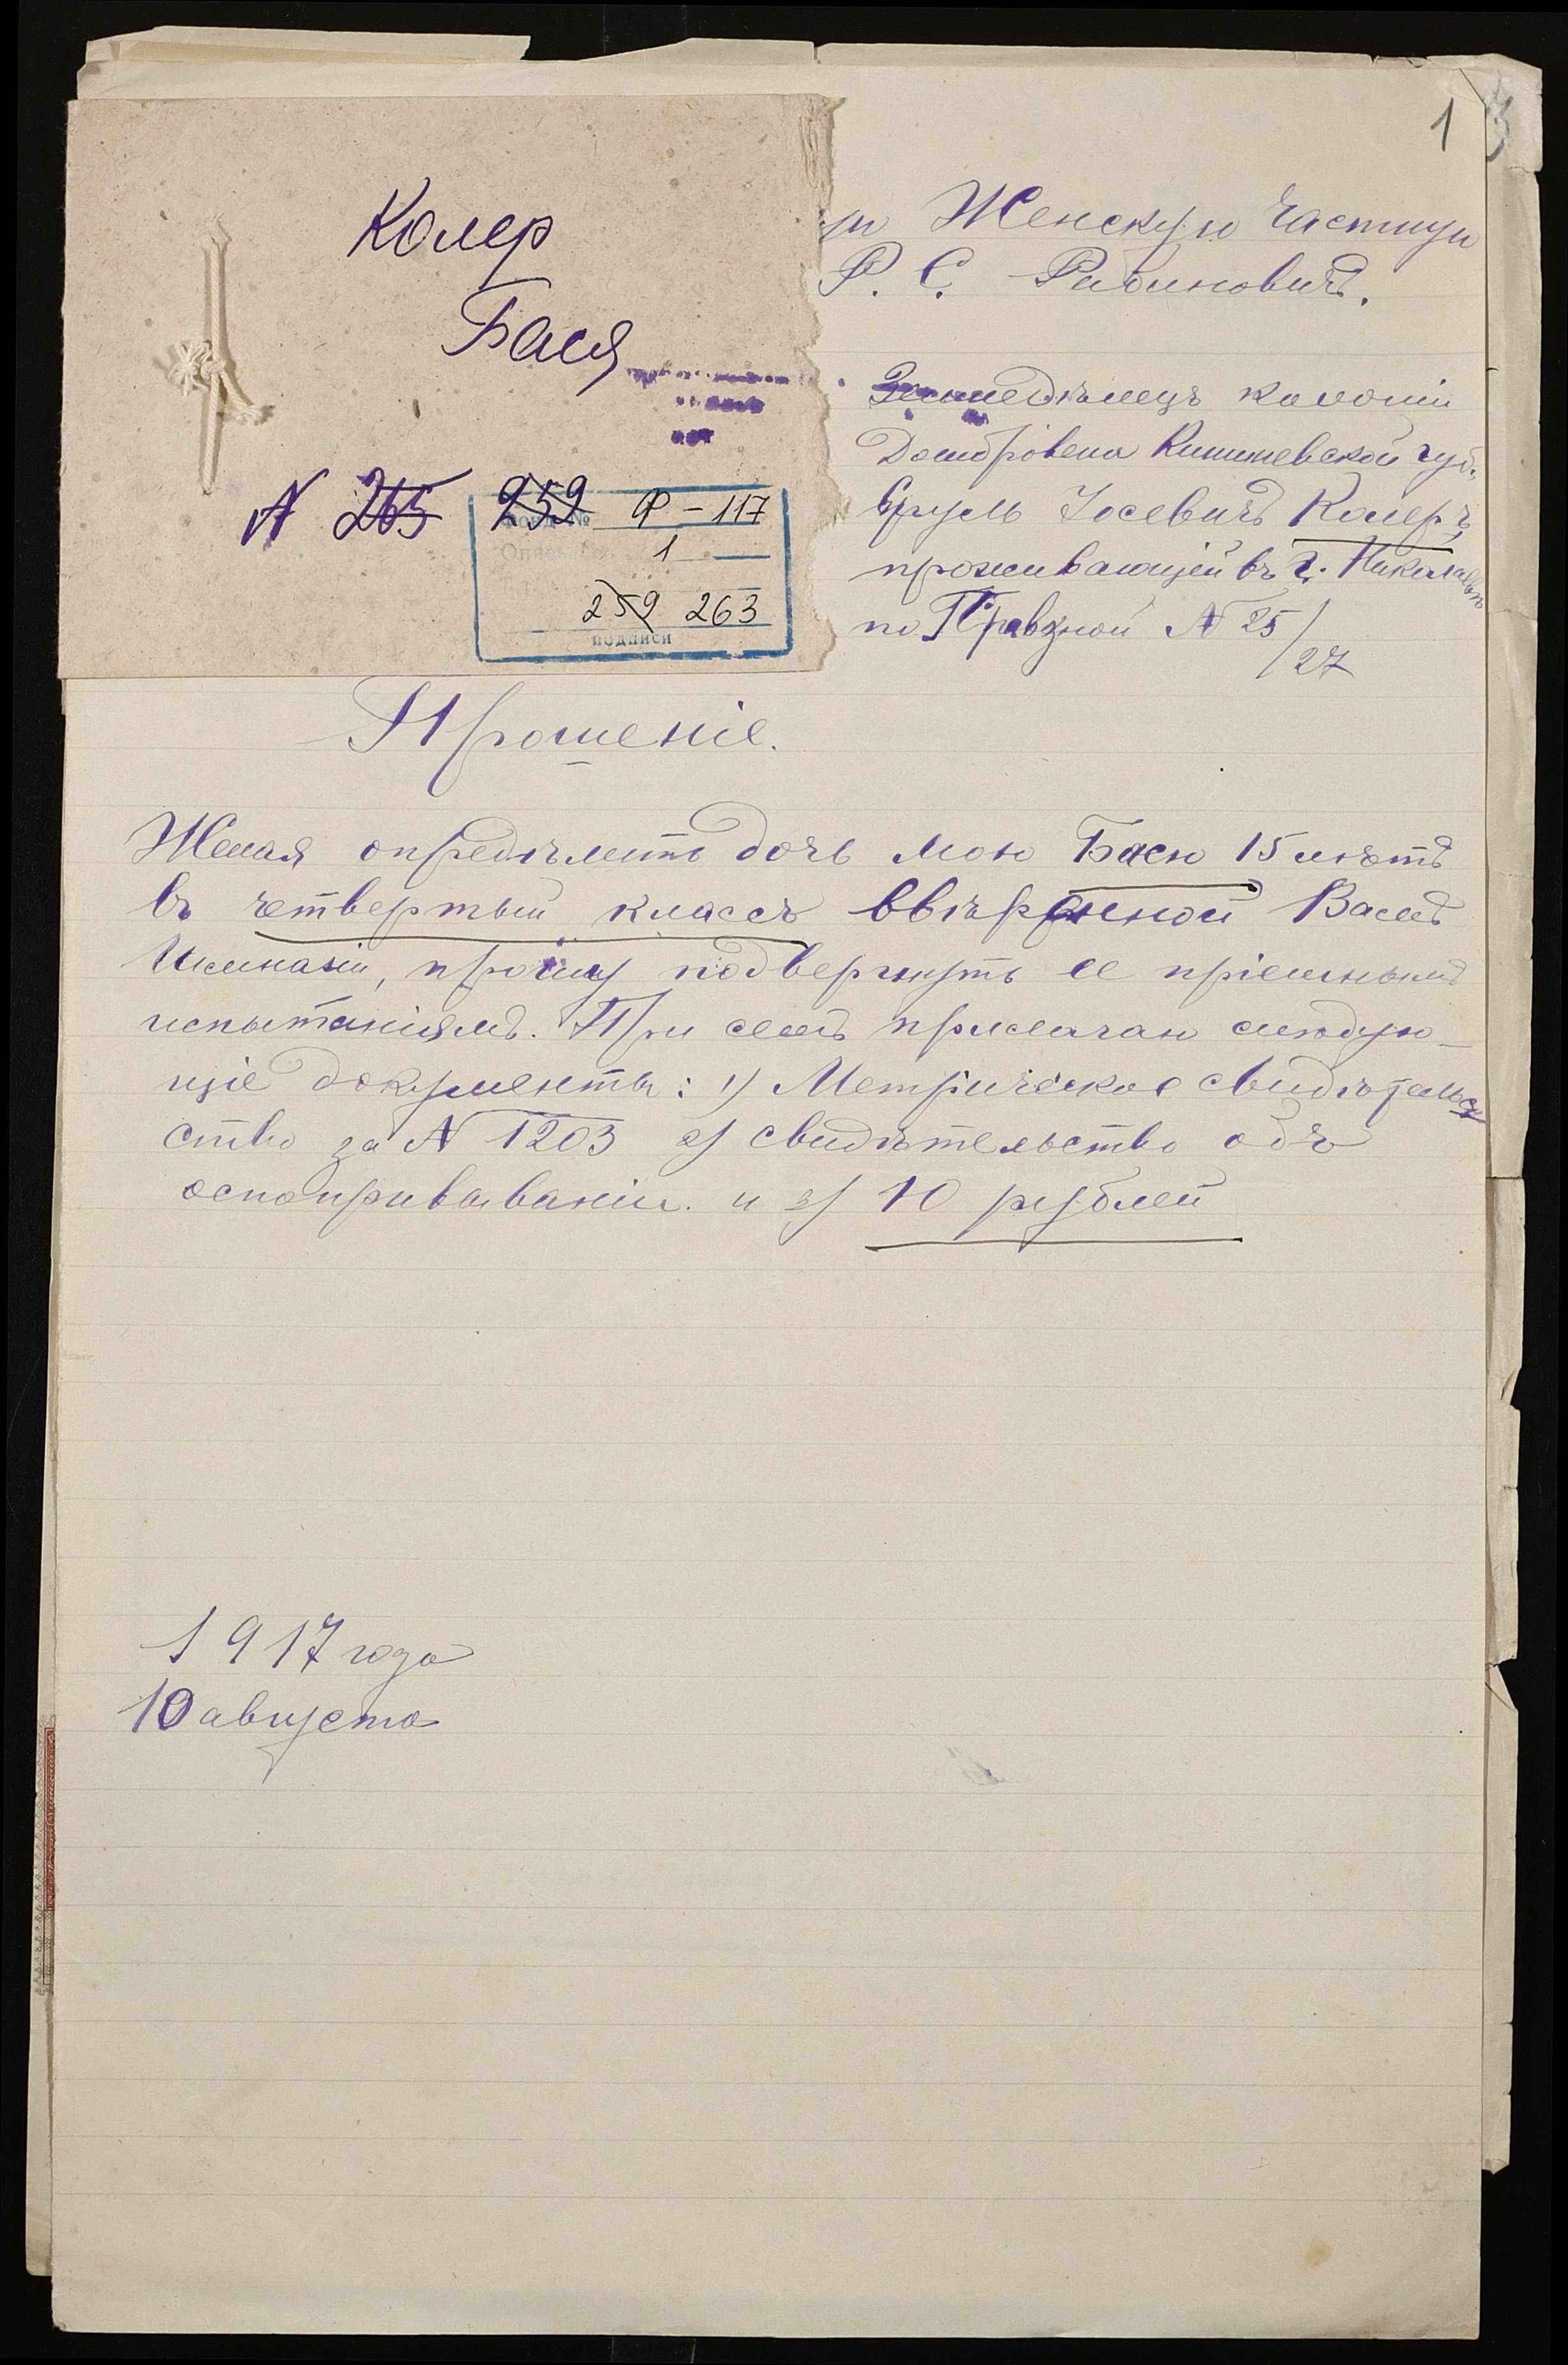 1
3
Колер
Бася
№ 265 259
Фонд № Ф-117
Опись 1
259 263
подписи
ую Женскую Частную
Р. С. Рабиновичъ.
Земледѣлецъ колоніи
Домбровена Кишиневской губ.
Сруль Іосевичъ Колеръ,
проживающій въ г. Николаевѣ
по Правзной № 25/27
Прошеніе.
Желая опредѣлить дочь мою Басю 15 лѣтъ
въ четвертый классъ ввѣренной Вамъ
Гимназіи, прошу подвергнуть ее пріемнымъ
испытаніямъ. При семъ прилагаю слѣдую-
щіе документы: 1) Метрическое свидѣтельс
ство за № 1203 2) свидѣтельство объ
оспопрививаніи. и 3) 10 рублей
1917 года
10 августа